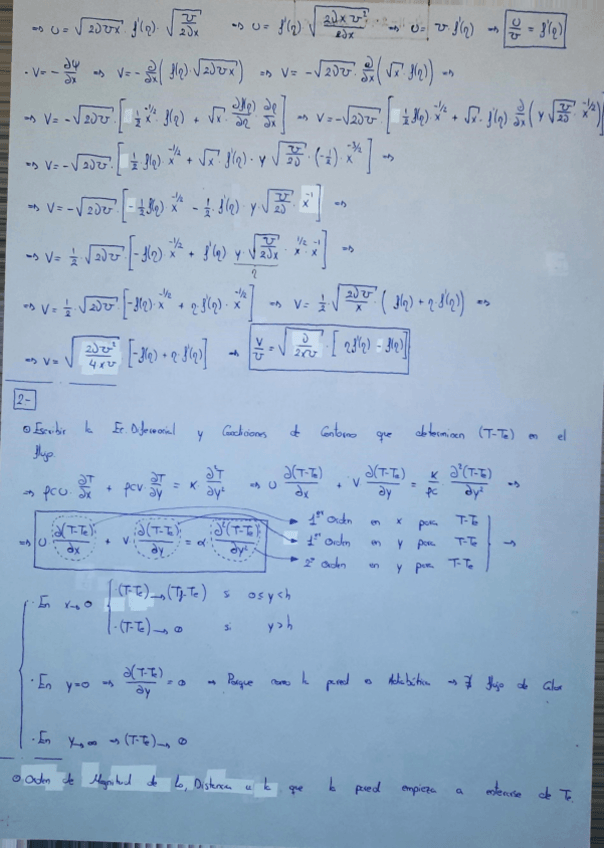 ⇒ U = √(2νUx) · f'(η) · √(U/2νx) ⇒ U = f'(η) · √(2νxU²/2νx) ⇒ U = U · f'(η) ⇒ U/U = f'(η)
· V = -∂ψ/∂x ⇒ V = -∂/∂x (f(η) · √(2νUx)) ⇒ V = -√(2νU) · ∂/∂x (√x · f(η)) ⇒
⇒ V = -√(2νU) · [½ x^(-1/2) · f(η) + √x · ∂f(η)/∂η · ∂η/∂x] ⇒ V = -√(2νU) · [½ f(η) · x^(-1/2) + √x · f'(η) ∂/∂x (y √(U/2ν) · x^(-1/2))]
⇒ V = -√(2νU) · [½ · f(η) · x^(-1/2) + √x · f'(η) · y √(U/2ν) · (-½) · x^(-3/2)] ⇒
⇒ V = -√(2νU) · [-½ f(η) · x^(-1/2) - ½ · f'(η) · y · √(U/2ν) · x^(-1)] ⇒
⇒ V = ½ · √(2νU) · [-f(η) · x^(-1/2) + f'(η) y · √(U/2νx) · x^(1/2) · x^(-1)] ⇒
η
⇒ V = ½ · √(2νU) · [-f(η) · x^(-1/2) + η · f'(η) · x^(-1/2)] ⇒ V = ½ · √(2νU/x) · (f(η) + η · f'(η)) ⇒
⇒ V = √(2νU²/4xU) · [-f(η) + η · f'(η)] ⇒ V/U = √(ν/2xU) · [ηf'(η) - f(η)]
2-
Escribir la Ec. Diferencial y Condiciones de Contorno que determinan (T-Te) en el
flujo.
⇒ ρcU · ∂T/∂x + ρcV · ∂T/∂y = K · ∂²T/∂y² ⇒ U ∂(T-Te)/∂x + V ∂(T-Te)/∂y = K/ρc ∂²(T-Te)/∂y² ⇒
⇒ U ∂(T-Te)/∂x + V ∂(T-Te)/∂y = α ∂²(T-Te)/∂y²
1er Orden en x para T-Te
1er Orden en y para T-Te
2º Orden en y para T-Te
· En x→0
· (T-Te) → (Tj-Te) si 0≤y<h
· (T-Te) → 0 si y>h
· En y=0 ⇒ ∂(T-Te)/∂y = 0 ⇒ Porque como la pared es Adiabática ⇒ ∄ flujo de Calor
· En y→∞ ⇒ (T-Te) → 0
Orden de Magnitud de Lo, Distancia a la que la pared empieza a enterarse de Te.